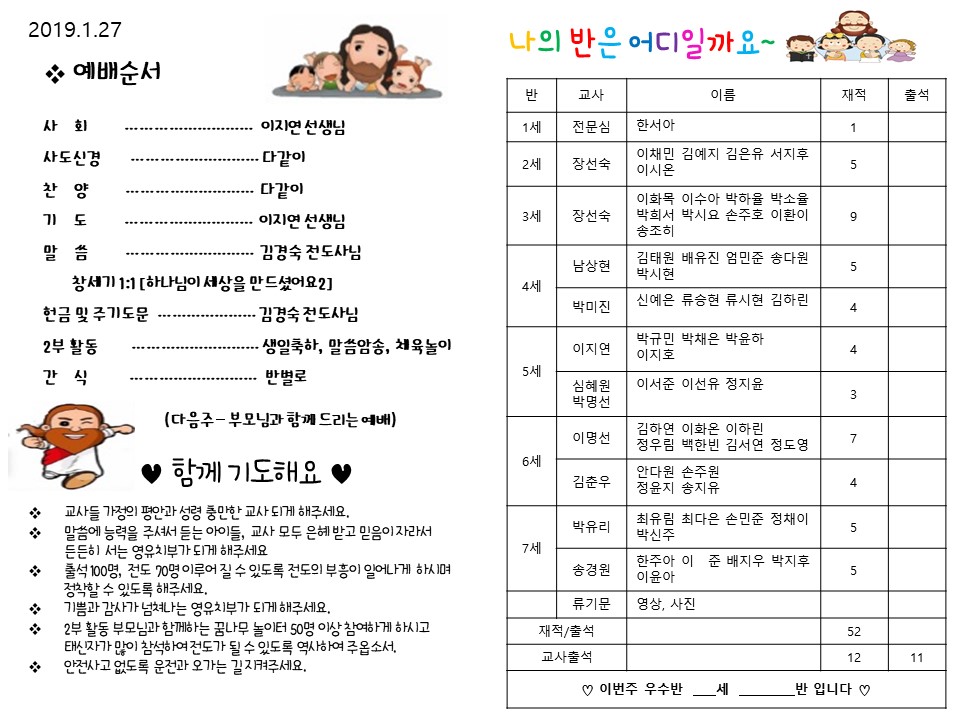 2019.1.27
❖ 예배순서
사 회 ---------------------------- 이지연 선생님
사도신경 ---------------------------- 다같이
찬 양 ---------------------------- 다같이
기 도 ---------------------------- 이지연 선생님
말 씀 ---------------------------- 김경숙 전도사님
창세기 1:1 [하나님이 세상을 만드셨어요2]
헌금 및 주기도문 --------------------- 김경숙 전도사님
2부 활동 ---------------------------- 생일축하, 말씀암송, 체육놀이
간 식 ---------------------------- 반별로
(다음주 – 부모님과 함께 드리는 예배)
♥ 함께 기도해요 ♥
❖ 교사들 가정의 평안과 성령 충만한 교사 되게 해주세요.
❖ 말씀에 능력을 주셔서 듣는 아이들, 교사 모두 은혜 받고 믿음이 자라서
든든히 서는 영유치부가 되게 해주세요
❖ 출석 100명, 전도 70명 이루어 질 수 있도록 전도의 부흥이 일어나게 하시며
정착할 수 있도록 해주세요.
❖ 기쁨과 감사가 넘쳐나는 영유치부가 되게 해주세요.
❖ 2부 활동 부모님과 함께하는 꿈나무 놀이터 50명 이상 참여하게 하시고
태신자가 많이 참석하여 전도가 될 수 있도록 역사하여 주옵소서.
❖ 안전사고 없도록 운전과 오가는 길 지켜주세요.
나의 반은 어디일까요~
반 교사 이름 재적 출석
1세 전문심 한서아 1
2세 장선숙 이채민 김예지 김은유 서지후
이시온 5
3세 장선숙 이화목 이수아 박하율 박소율
박희서 박시요 손주호 이환이
송조히 9
4세 남상현 김태원 배유진 엄민준 송다원
박시현 5
박미진 신예은 류승현 류시현 김하린 4
5세 이지연 박규민 박채은 박윤하
이지호 4
심혜원
박명선 이서준 이선유 정지윤 3
6세 이명선 김하연 이화온 이하린
정우림 백한빈 김서연 정도영 7
김춘우 안다원 손주원
정윤지 송지유 4
7세 박유리 최유림 최다은 손민준 정채이
박신주 5
송경원 한주아 이 준 배지우 박지후
이윤아 5
류기문 영상, 사진
재적/출석 52
교사출석 12 11
♡ 이번주 우수반 ___세 ________반 입니다 ♡